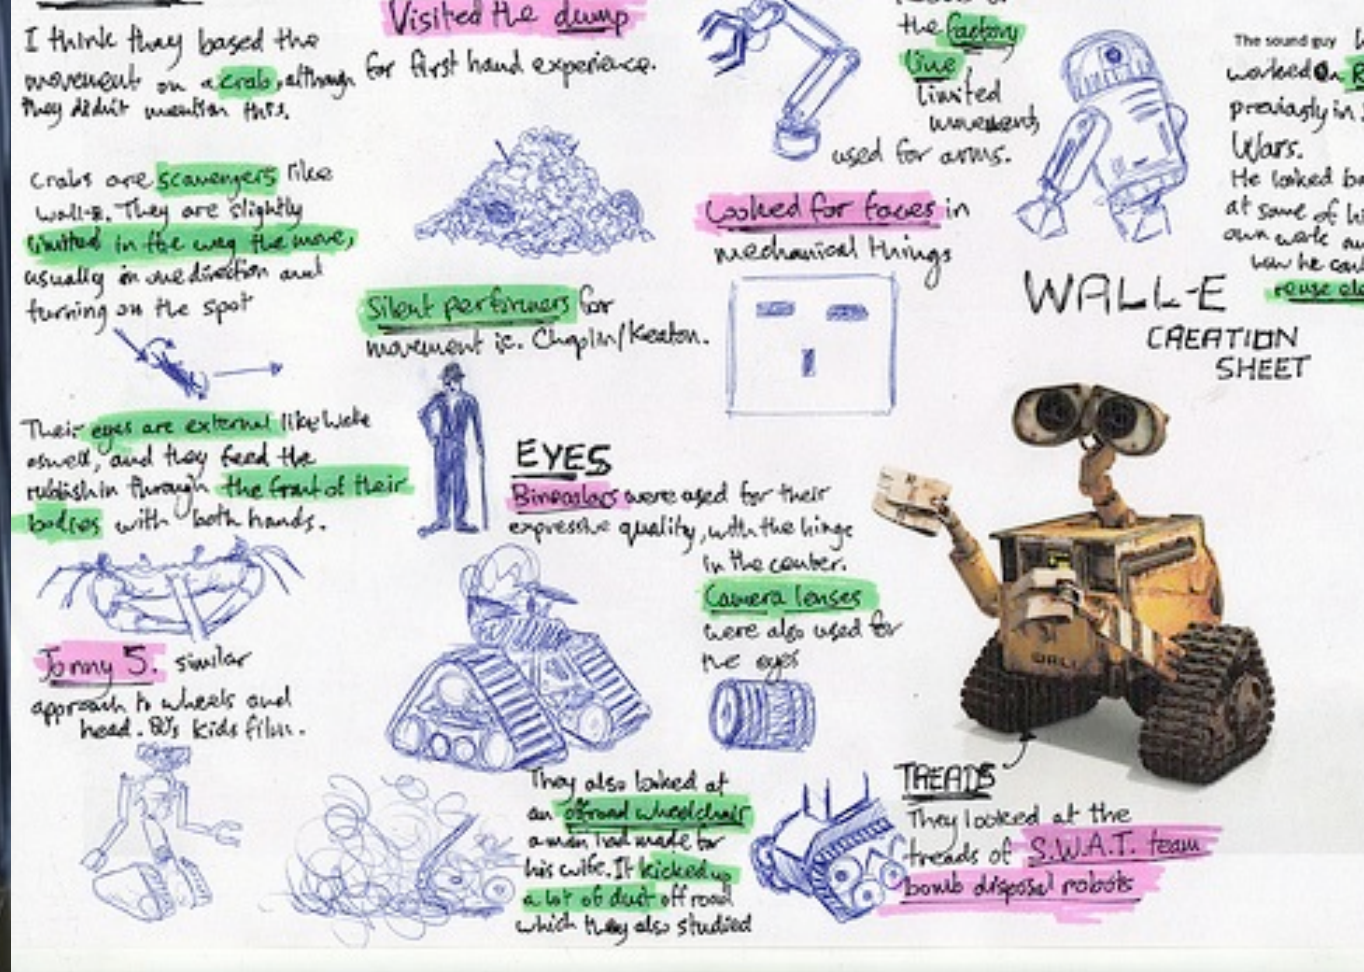 I think they based the
movement on a crab, although
they didn't mention this.
Crabs are scavengers like
wall-e. They are slightly
limited in the way the move,
usually in one direction and
turning on the spot
Their eyes are external like
aswell, and they feed the
rubbish in through the front of their
bodies with both hands.
Jonny 5. similar
approach to wheels and
head. 80's kids film.
Visited the dump
for first hand experience.
Silent performers for
movement ie. Chaplin/Keaton.
EYES
Binoculars were used for their
expressive quality, with the hinge
in the center.
Camera lenses
were also used for
the eyes
They also looked at
an offroad wheelchair
a man had made for
his wife. It kicked up
a lot of dust off road
which they also studied
the factory
line
limited
movement,
used for arms.
Looked for faces in
mechanical things
The sound guy
worked on
previously in
Wars.
He looked
at some of
own work
how he
reuse
WALL-E
CREATION
SHEET
WALL
TREADS
They looked at the
treads of S.W.A.T. team
bomb disposal robots